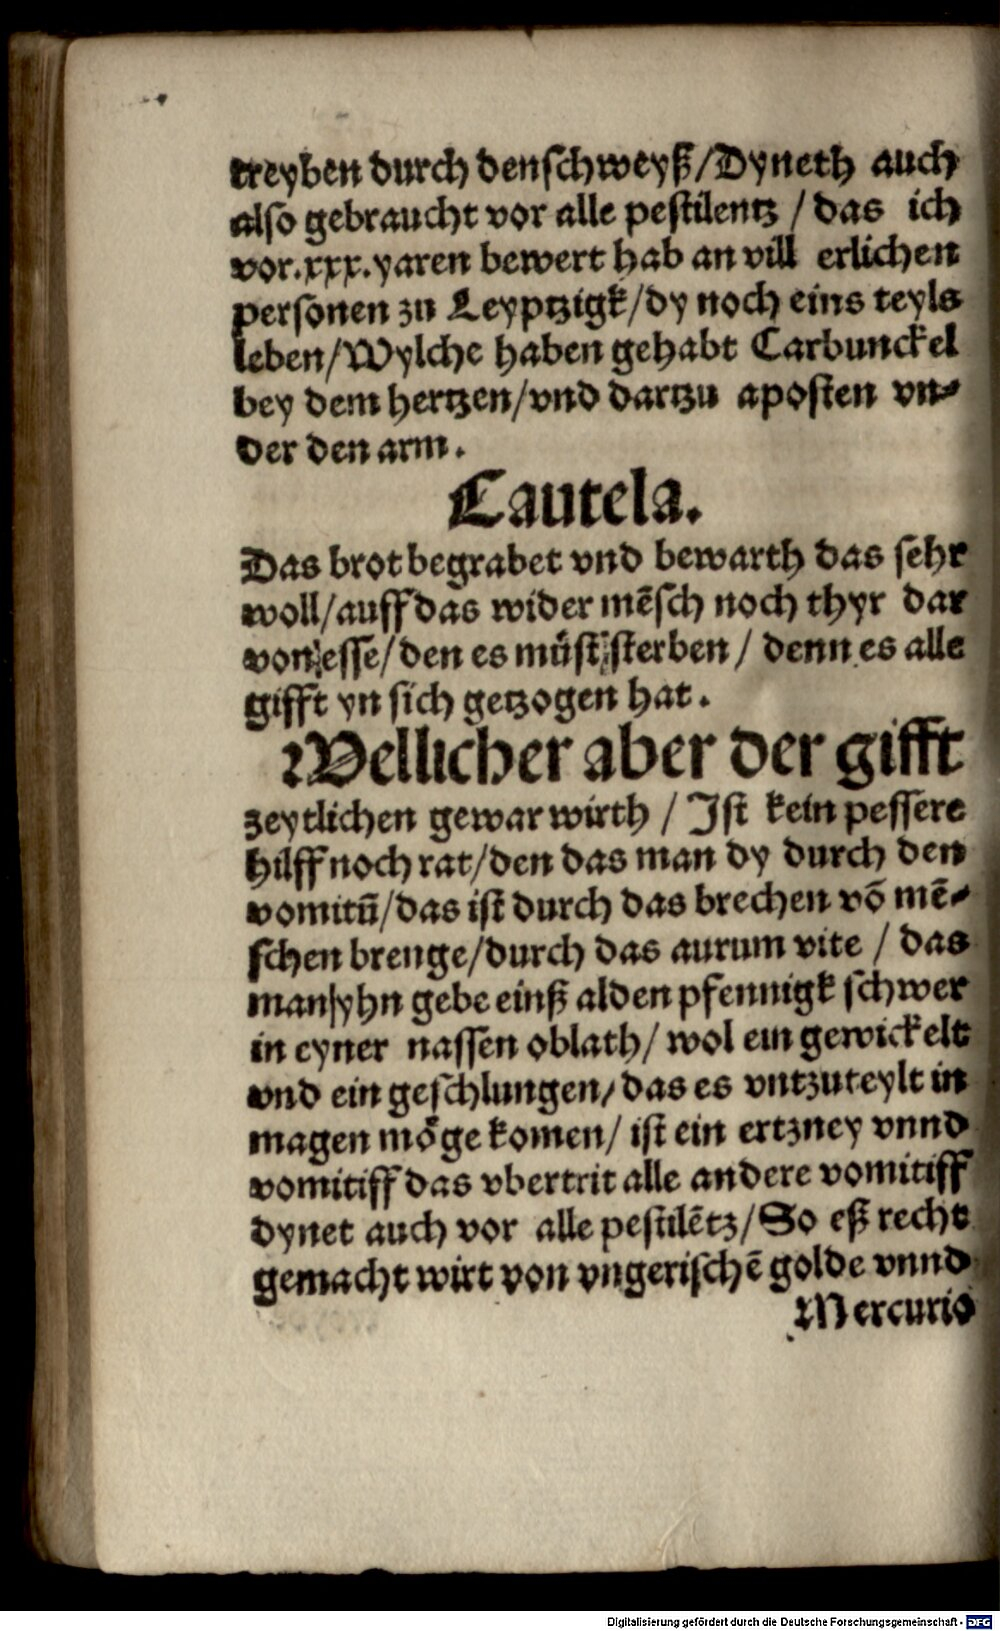 treyben durch denschweyß/Dyneth auch
also gebraucht vor alle pestilentz / das ich
vor.xxx.yaren bewert hab an vill erlichen
personen zu Leyptzigk/dy noch eins teyls
leben/Wylche haben gehabt Carbunckel
bey dem hertzen/vnd dartzu aposten vn⸗
der den arm.
Cautela.
Das brot begrabet vnd bewarth das sehr
woll/auff das wider mẽsch noch thyr dar
von esse/den es müst sterben/ denn es alle
gifft yn sich getzogen hat.
Wellicher aber der gifft
zeytlichen gewar wirth / Ist kein pessere
hilff noch rat/den das man dy durch den
vomitũ/das ist durch das brechen võ mẽ⸗
schen brenge/durch das aurum vite / das
man yhn gebe einß alden pfennigk schwer
in eyner nassen oblath/ wol ein gewickelt
vnd ein geschlungen/das es vntzuteylt in
magen möge komen/ ist ein ertzney vnnd
vomitiff das vbertrit alle andere vomitiff
dynet auch vor alle pestilẽtz/So eß recht
gemacht wirt von vngerischẽ golde vnnd
Mercurio
Digitalisierung gefördert durch die Deutsche Forschungsgemeinschaft - DFG